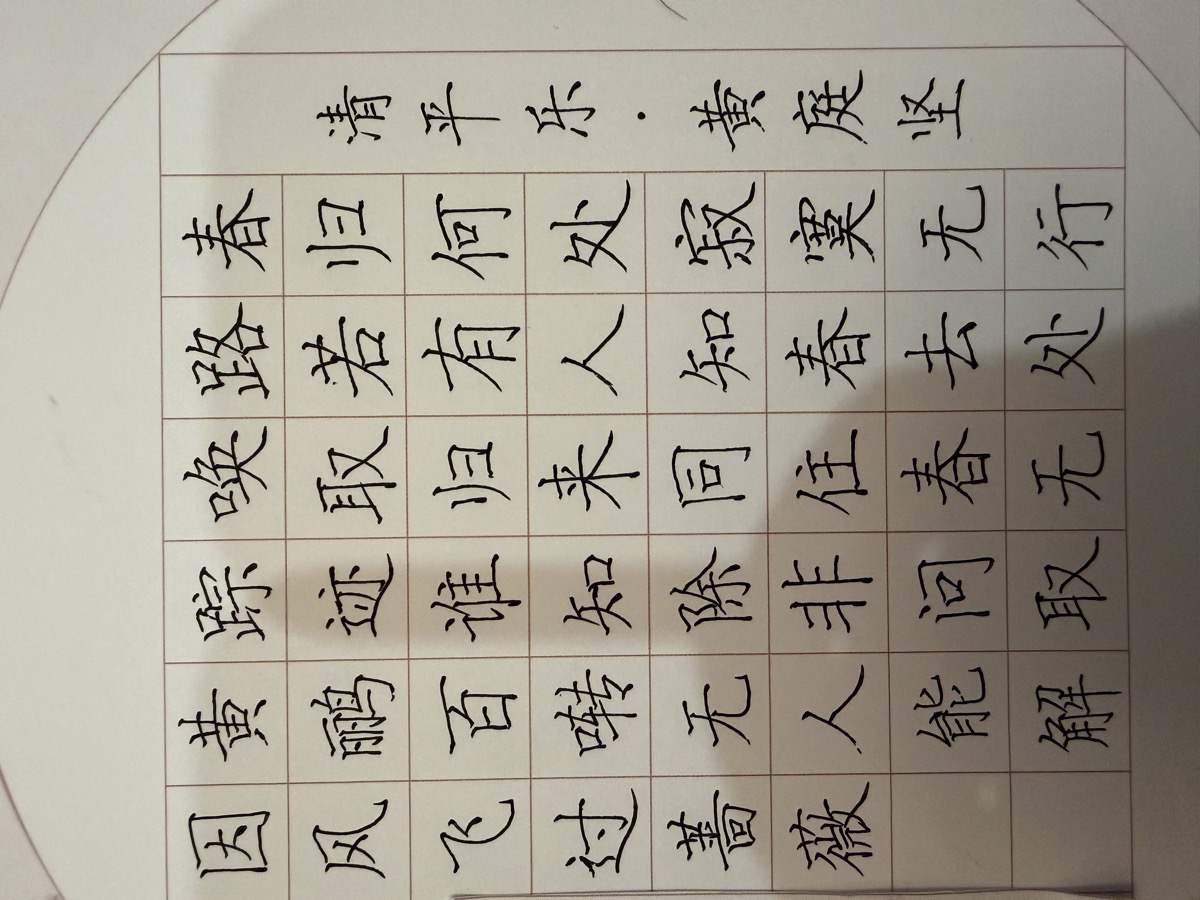 清平乐·黄庭坚
春归何处寂寞无行
路若有人知春去处
唤取归来同住春无
踪迹谁知除非问取
黄鹂百啭无人能解
因风飞过蔷薇